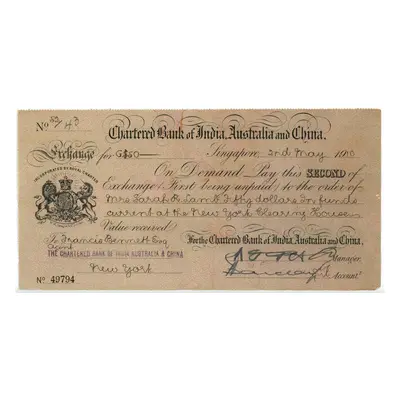 No 39/43
Chartered Bank of India, Australia and China.
Exchange for G$50— Singapore 2nd May 1910
INCORPORATED BY ROYAL CHARTER
On Demand Pay this SECOND of
Exchange (First being unpaid) to the order of
Mrs Sarah R. Lamb Fifty dollars in funds
current at the New York Clearing House
Value received
To Francis Bennett Esq For the Chartered Bank of India, Australia and China.
Agent
THE CHARTERED BANK OF INDIA AUSTRALIA & CHINA
Manager.
New York
Account.
No 49794